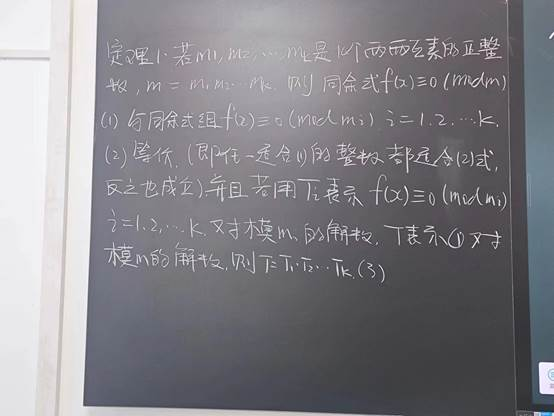 定理1.若m1,m2,…,mk是k个两两互素的正整
数,m=m1m2…mk.则同余式f(x)≡0(modm)
(1)与同余式组f(x)≡0(modmi) i=1.2.…k.
(2)等价.(即任一适合(1)的整数都适合(2)式,
反之也成立).并且若用Ti表示f(x)≡0(modmi)
i=1.2,…k.对模mi的解数,T表示①对
模m的解数,则T=T1·T2…Tk.(3)